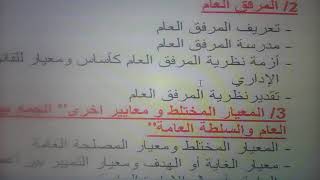 2/ المرفق العام
- تعريف المرفق العام
- مدرسة المرفق العام
- أزمة نظرية المرفق العام كأساس ومعيار للقانو
الإداري
- تقدير نظرية المرفق العام
3/ المعيار المختلط و معايير اخرى" الجمع بي
العام والسلطة العامة"
- المعيار المختلط ومعيار المصلحة العامة
- معيار الغاية أو الهدف ومعيار التمييز بين